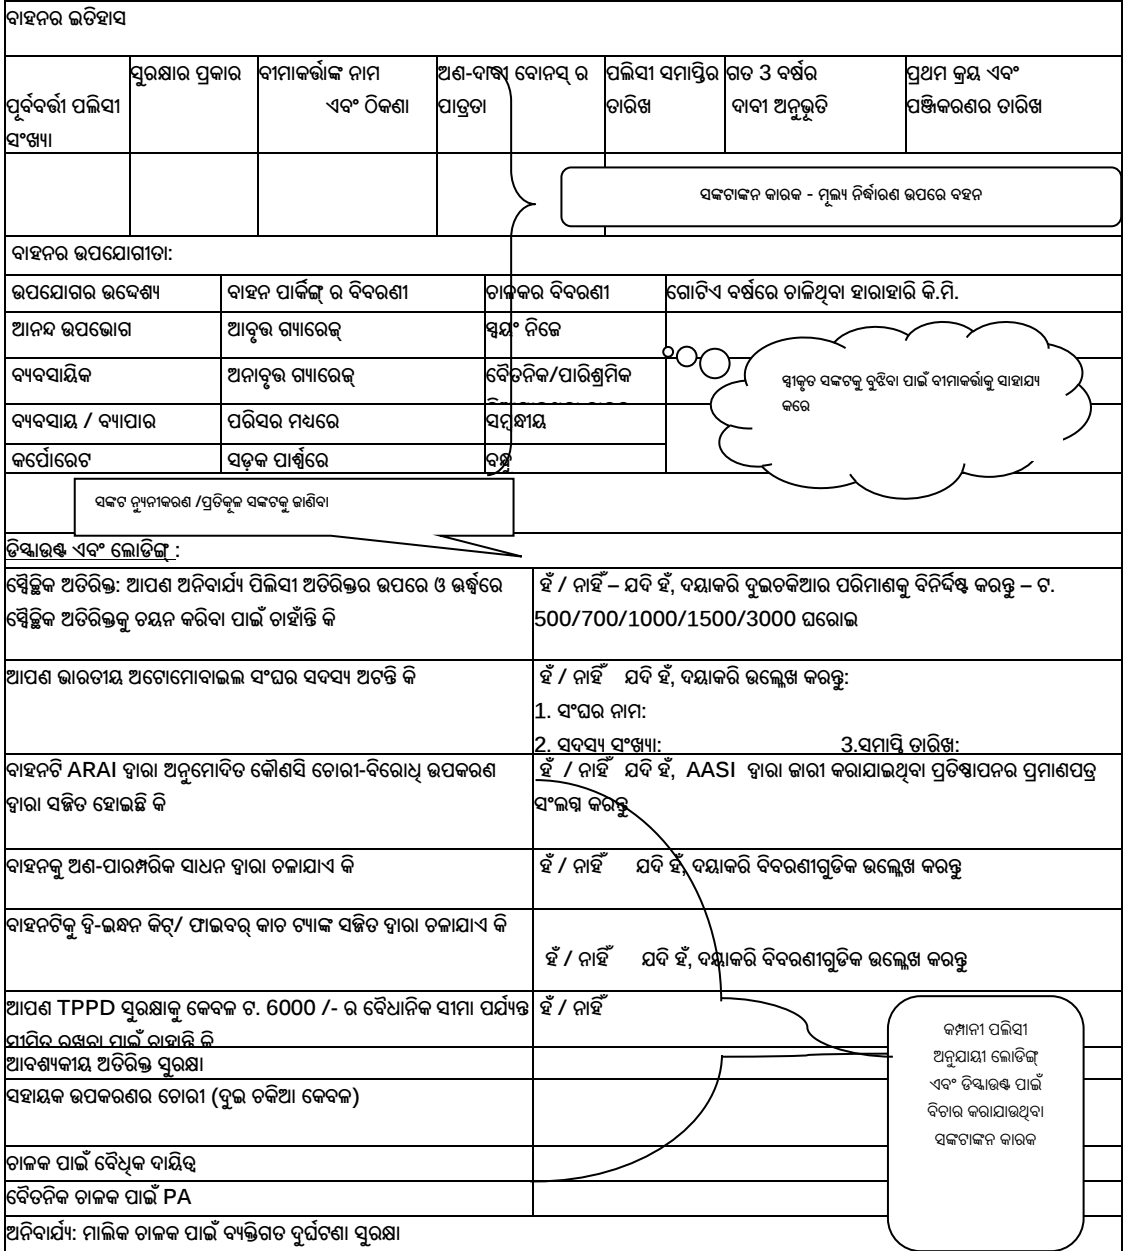 ବାହନର ଇତିହାସ
ପୂର୍ବବର୍ତ୍ତୀ ପଲିସୀ ସଂଖ୍ୟା
ସୁରକ୍ଷାର ପ୍ରକାର
ବୀମାକର୍ତ୍ତାଙ୍କ ନାମ
ଏବଂ ଠିକଣା
ଅଣ-ଦାବୀ ବୋନସ୍ ର
ପାତ୍ରତା
ପଲିସୀ ସମାପ୍ତିର
ତାରିଖ
ଗତ 3 ବର୍ଷର
ଦାବୀ ଅନୁଭୂତି
ପ୍ରଥମ କ୍ରୟ ଏବଂ
ପଞ୍ଜିକରଣର ତାରିଖ
ସଙ୍କଟାଙ୍କନ କାରକ - ମୂଲ୍ୟ ନିର୍ଦ୍ଧାରଣ ଉପରେ ବହନ
ବାହନର ଉପଯୋଗୀତା:
ଉପଯୋଗର ଉଦ୍ଦେଶ୍ୟ ବାହନ ପାର୍କିଙ୍ଗ୍ ର ବିବରଣୀ ଚାଳକର ବିବରଣୀ ଗୋଟିଏ ବର୍ଷରେ ଚାଳିଥିବା ହାରାହାରି କି.ମି.
ଆନନ୍ଦ ଉପଭୋଗ ଆବୃତ୍ତ ଗ୍ୟାରେଜ୍ ସ୍ୱୟଂ ନିଜେ
ବ୍ୟବସାୟିକ ଅନାବୃତ୍ତ ଗ୍ୟାରେଜ୍ ବୈତନିକ/ପାରିଶ୍ରମିକ
ସ୍ୱୀକୃତ ସଙ୍କଟକୁ ବୁଝିବା ପାଇଁ ବୀମାକର୍ତ୍ତାକୁ ସାହାଯ୍ୟ
କରେ
ବ୍ୟବସାୟ / ବ୍ୟାପାର ପରିସର ମଧ୍ୟରେ ସମ୍ବନ୍ଧୀୟ
କର୍ପୋରେଟ ସଡ଼କ ପାର୍ଶ୍ୱରେ ବନ୍ଧୁ
ସଙ୍କଟ ନ୍ୟୁନୀକରଣ /ପ୍ରତିକୂଳ ସଙ୍କଟକୁ ଜାଣିବା
ଡିସ୍କାଉଣ୍ଟ ଏବଂ ଲୋଡିଙ୍ଗ୍ :
ସ୍ୱୈଚ୍ଛିକ ଅତିରିକ୍ତ: ଆପଣ ଅନିବାର୍ଯ୍ୟ ପିଲିସୀ ଅତିରିକ୍ତର ଉପରେ ଓ ଊର୍ଦ୍ଧ୍ୱରେ
ସ୍ୱୈଚ୍ଛିକ ଅତିରିକ୍ତକୁ ଚୟନ କରିବା ପାଇଁ ଚାହାଁନ୍ତି କି
ହଁ / ନାହିଁ – ଯଦି ହଁ, ଦୟାକରି ଦୁଇଚକିଆର ପରିମାଣକୁ ବିନିର୍ଦ୍ଦିଷ୍ଟ କରନ୍ତୁ – ଟ.
500/700/1000/1500/3000 ଘରୋଇ
ଆପଣ ଭାରତୀୟ ଅଟୋମୋବାଇଲ ସଂଘର ସଦସ୍ୟ ଅଟନ୍ତି କି
ହଁ / ନାହିଁ ଯଦି ହଁ, ଦୟାକରି ଉଲ୍ଲେଖ କରନ୍ତୁ:
1. ସଂଘର ନାମ:
2. ସଦସ୍ୟ ସଂଖ୍ୟା: 3.ସମାପ୍ତି ତାରିଖ:
ବାହନଟି ARAI ଦ୍ୱାରା ଅନୁମୋଦିତ କୌଣସି ଚୋରୀ-ବିରୋଧି ଉପକରଣ
ଦ୍ୱାରା ସଜ୍ଜିତ ହୋଇଛି କି
ହଁ / ନାହିଁ ଯଦି ହଁ, AASI ଦ୍ୱାରା ଜାରୀ କରାଯାଇଥିବା ପ୍ରତିଷ୍ଠାପନର ପ୍ରମାଣପତ୍ର
ସଂଲଗ୍ନ କରନ୍ତୁ
ବାହନକୁ ଅଣ-ପାରମ୍ପରିକ ସାଧନ ଦ୍ୱାରା ଚଲାଯାଏ କି
ହଁ / ନାହିଁ ଯଦି ହଁ, ଦୟାକରି ବିବରଣୀଗୁଡିକ ଉଲ୍ଲେଖ କରନ୍ତୁ
ବାହନଟିକୁ ଦ୍ୱି-ଇନ୍ଧନ କିଟ୍/ ଫାଇବର୍ କାଚ ଟ୍ୟାଙ୍କ ସଜ୍ଜିତ ଦ୍ୱାରା ଚଳାଯାଏ କି
ହଁ / ନାହିଁ ଯଦି ହଁ, ଦୟାକରି ବିବରଣୀଗୁଡିକ ଉଲ୍ଲେଖ କରନ୍ତୁ
ଆପଣ TPPD ସୁରକ୍ଷାକୁ କେବଳ ଟ. 6000 /- ର ବୈଧାନିକ ସୀମା ପର୍ଯ୍ୟନ୍ତ
ସୀମିତ ରଖିବା ପାଇଁ ଚାହାନ୍ତି କି
ହଁ / ନାହିଁ
ଆବଶ୍ୟକୀୟ ଅତିରିକ୍ତ ସୁରକ୍ଷା
କମ୍ପାନୀ ପଲିସୀ
ଅନୁଯାୟୀ ଲୋଡିଙ୍ଗ୍
ଏବଂ ଡିସ୍କାଉଣ୍ଟ ପାଇଁ
ବିଚାର କରାଯାଉଥିବା
ସଙ୍କଟାଙ୍କନ କାରକ
ସହାୟକ ଉପକରଣର ଚୋରୀ (ଦୁଇ ଚକିଆ କେବଳ)
ଚାଳକ ପାଇଁ ବୈଧିକ ଦାୟିତ୍ୱ
ବୈତନିକ ଚାଳକ ପାଇଁ PA
ଅନିବାର୍ଯ୍ୟ: ମାଲିକ ଚାଳକ ପାଇଁ ବ୍ୟକ୍ତିଗତ ଦୁର୍ଘଟଣା ସୁରକ୍ଷା